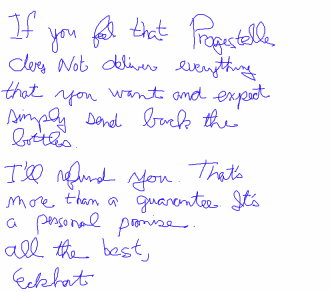 If you feel that Progestelle
does Not deliver everything
that you want and expect
simply send back the
bottles.
I'll refund you. That's
more than a guarantee. It's
a personal promise.
all the best,
Eckhart